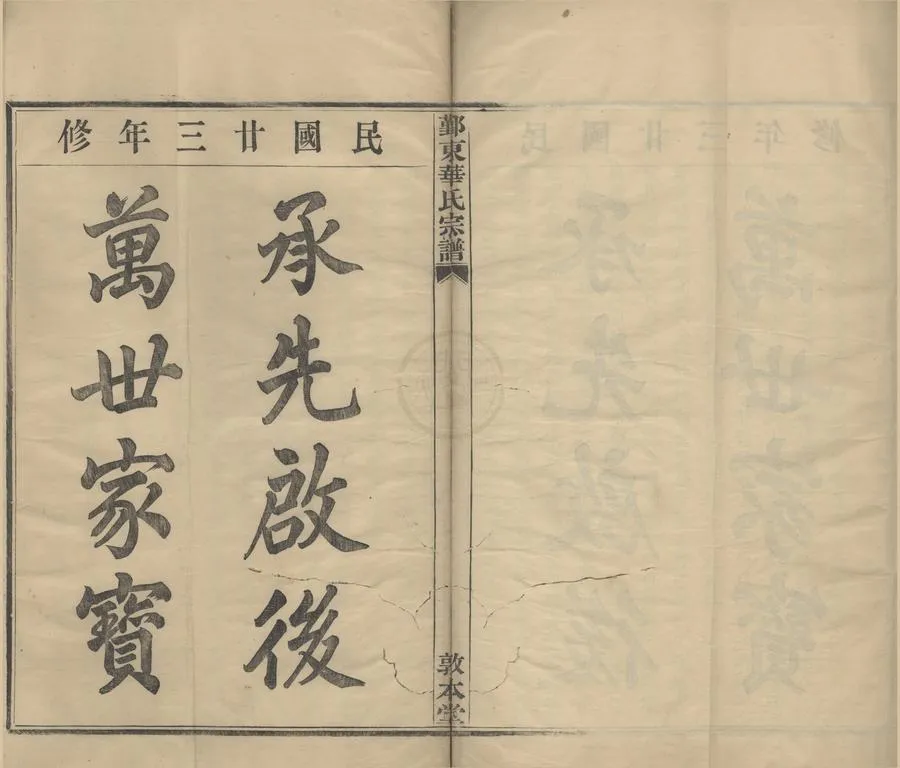 民國廿三年修
承先啟後
萬世家寶
鄞東華氏宗譜
敦本堂